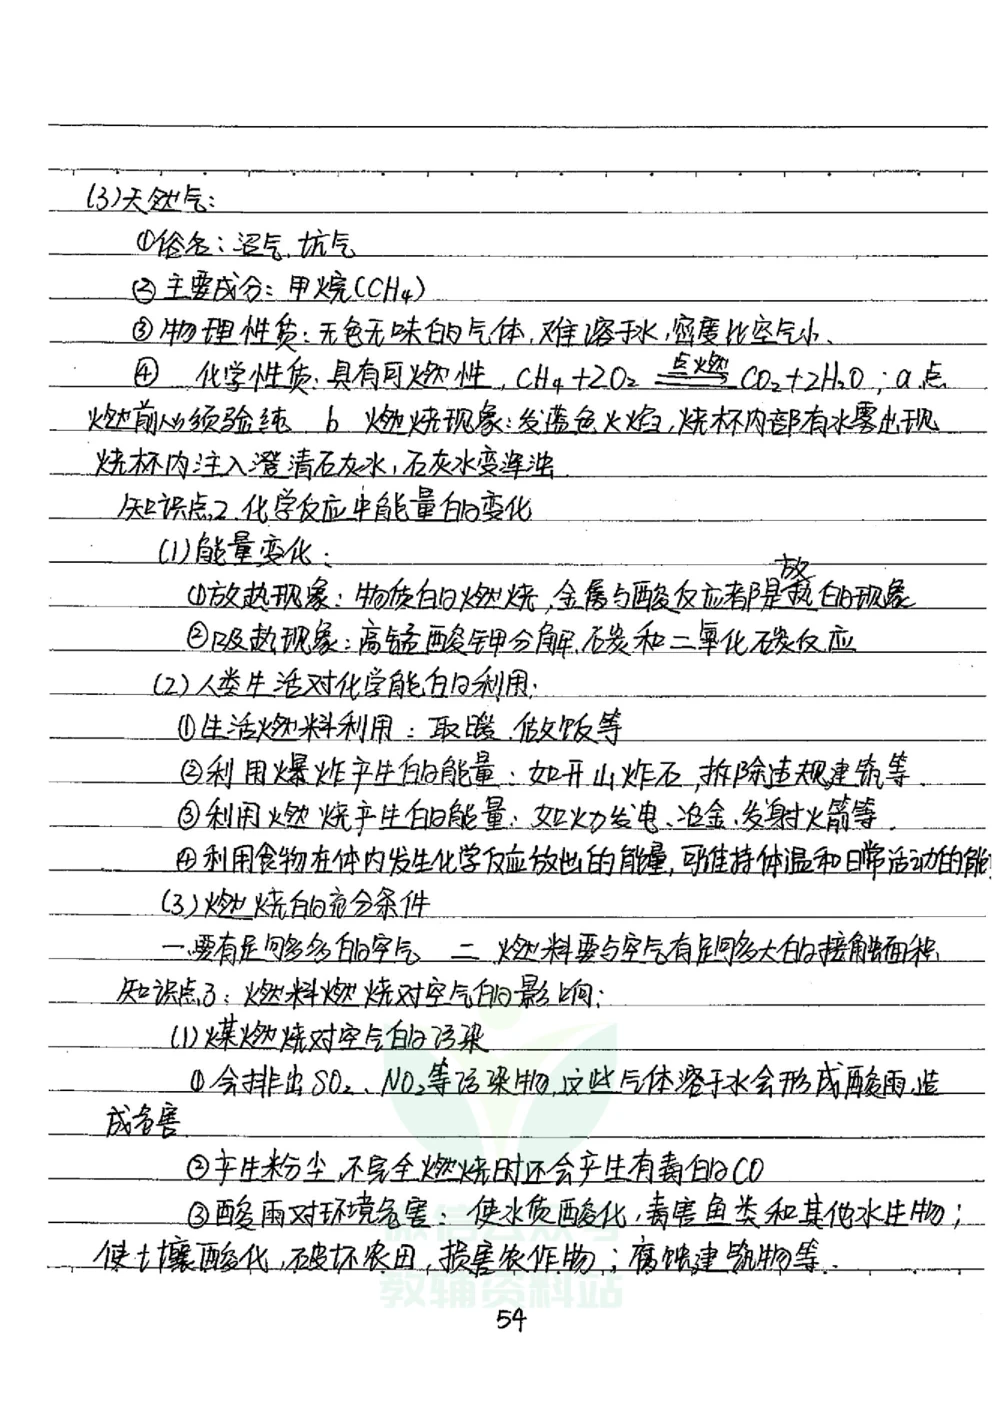 (3)天然气:
①俗名:沼气、坑气
②主要成分:甲烷(CH₄)
③物理性质:无色无味的气体,难溶于水,密度比空气小、
④ 化学性质:具有可燃性,CH₄+2O₂ 点燃 CO₂+2H₂O;a.点
燃前必须验纯 b 燃烧现象:发蓝色火焰,烧杯内部有水雾出现
烧杯内注入澄清石灰水,石灰水变浑浊
知识点2.化学反应中能量的变化
(1)能量变化:
①放热现象:物质的燃烧,金属与酸反应都是放热的现象
②吸热现象:高锰酸钾分解,碳和二氧化碳反应
(2)人类生活对化学能的利用:
①生活燃料利用:取暖.做饭等
②利用爆炸产生的能量:如开山炸石,拆除违规建筑等.
③利用燃烧产生的能量:如火力发电、冶金、发射火箭等.
④利用食物在体内发生化学反应放出的能量,可维持体温和日常活动的能
(3)燃烧的充分条件
一.要有足够多的空气 二 燃料要与空气有足够大的接触面积.
知识点3:燃料燃烧对空气的影响:
(1)煤燃烧对空气的污染
①会排出SO₂、NO₂等污染物,这些气体溶于水会形成酸雨,造
成危害.
②产生粉尘,不完全燃烧时还会产生有毒的CO
③酸雨对环境危害:使水质酸化,毒害鱼类和其他水生物;
使土壤酸化,破坏农田,损害农作物;腐蚀建筑物等.
微信公众号
教辅资料站
54